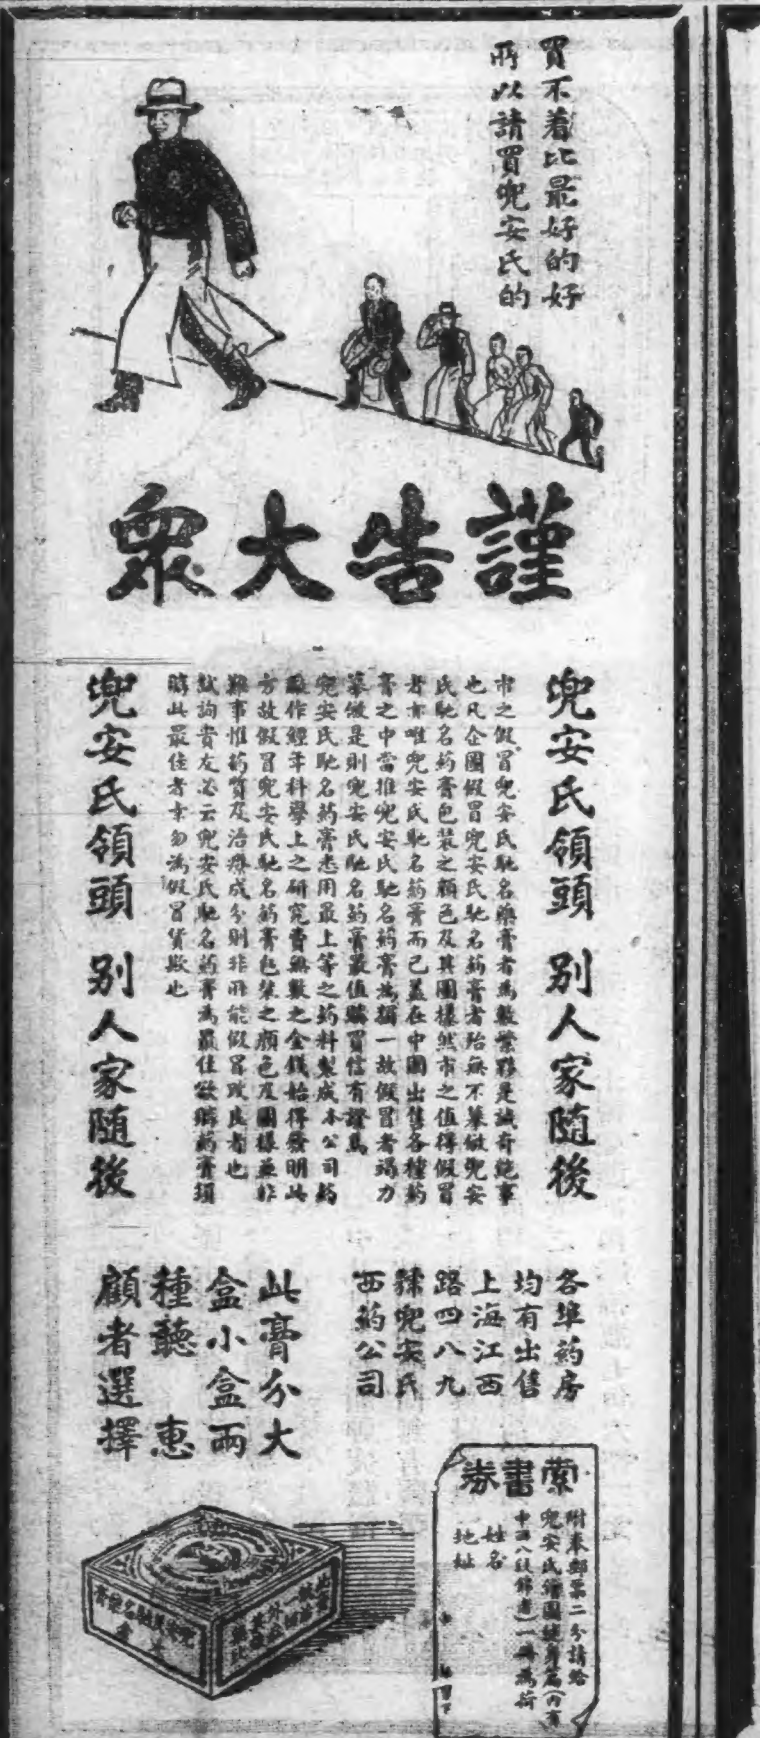 買不着比最好的好
所以請買兜安氏的
謹告大衆
兜安氏領頭 別人家隨後
市之假冒兜安氏馳名藥膏者為數繁夥是誠奇絕事
也凡企圖假冒兜安氏馳名葯膏者殆無不摹倣兜安
氏馳名葯膏包裝之顏色及其圖樣然市之值得假冒
者亦唯兜安氏馳名葯膏而已蓋在中國出售各種葯
膏之中當推兜安氏馳名葯膏為獨一故假冒者竭力
摹倣是則兜安氏馳名葯膏最值購買信有證焉
兜安氏馳名葯膏悉用最上等之葯料製成本公司葯
師作經年科學上之研究費無數之金錢始得發明此
方故假冒兜安氏馳名葯膏包裝之顏色及圖樣並非
難事惟葯質及治療成分則非所能假冒改良者也
試詢貴友必云兜安氏馳名葯膏為最佳欲購葯膏須
購此最佳者幸勿為假冒貨欺也
兜安氏領頭 別人家隨後
各埠葯房
均有出售
上海江西
路四八九
號兜安氏
西葯公司
此膏分大
盒小盒兩
種聽 惠
顧者選擇
索書券
附奉郵票二分請給
兜安氏繪圖健身篇(內有
中西八段錦書)一冊為荷
姓名
地址
兜安氏馳名葯膏